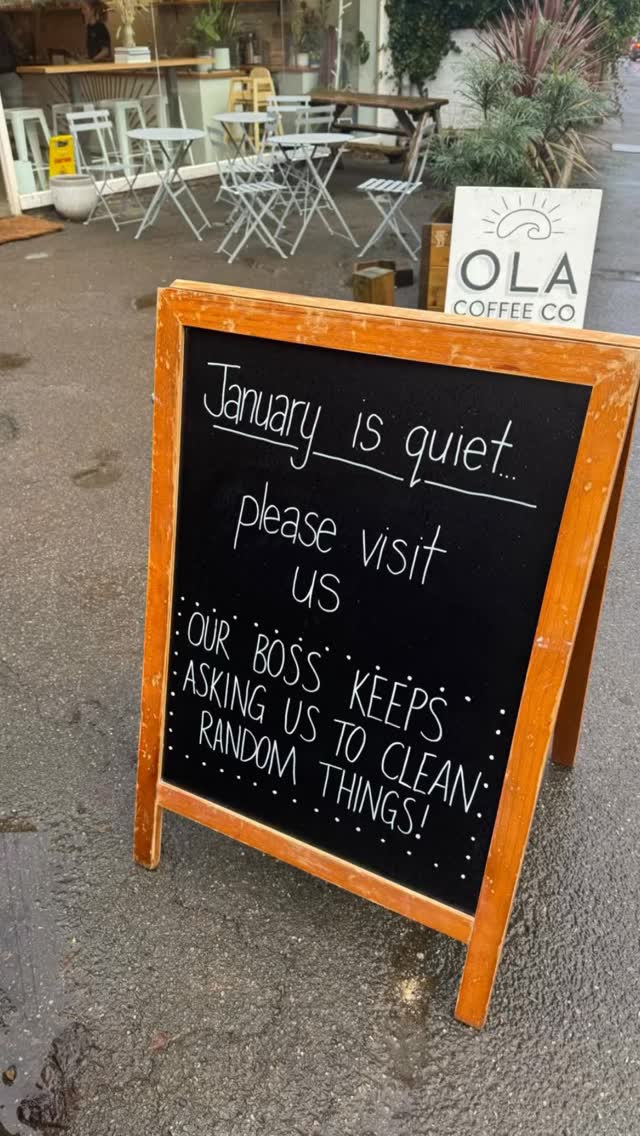 OLA
COFFEE CO
January is quiet...
please visit
us
OUR BOSS KEEPS
ASKING US TO CLEAN
RANDOM THINGS!